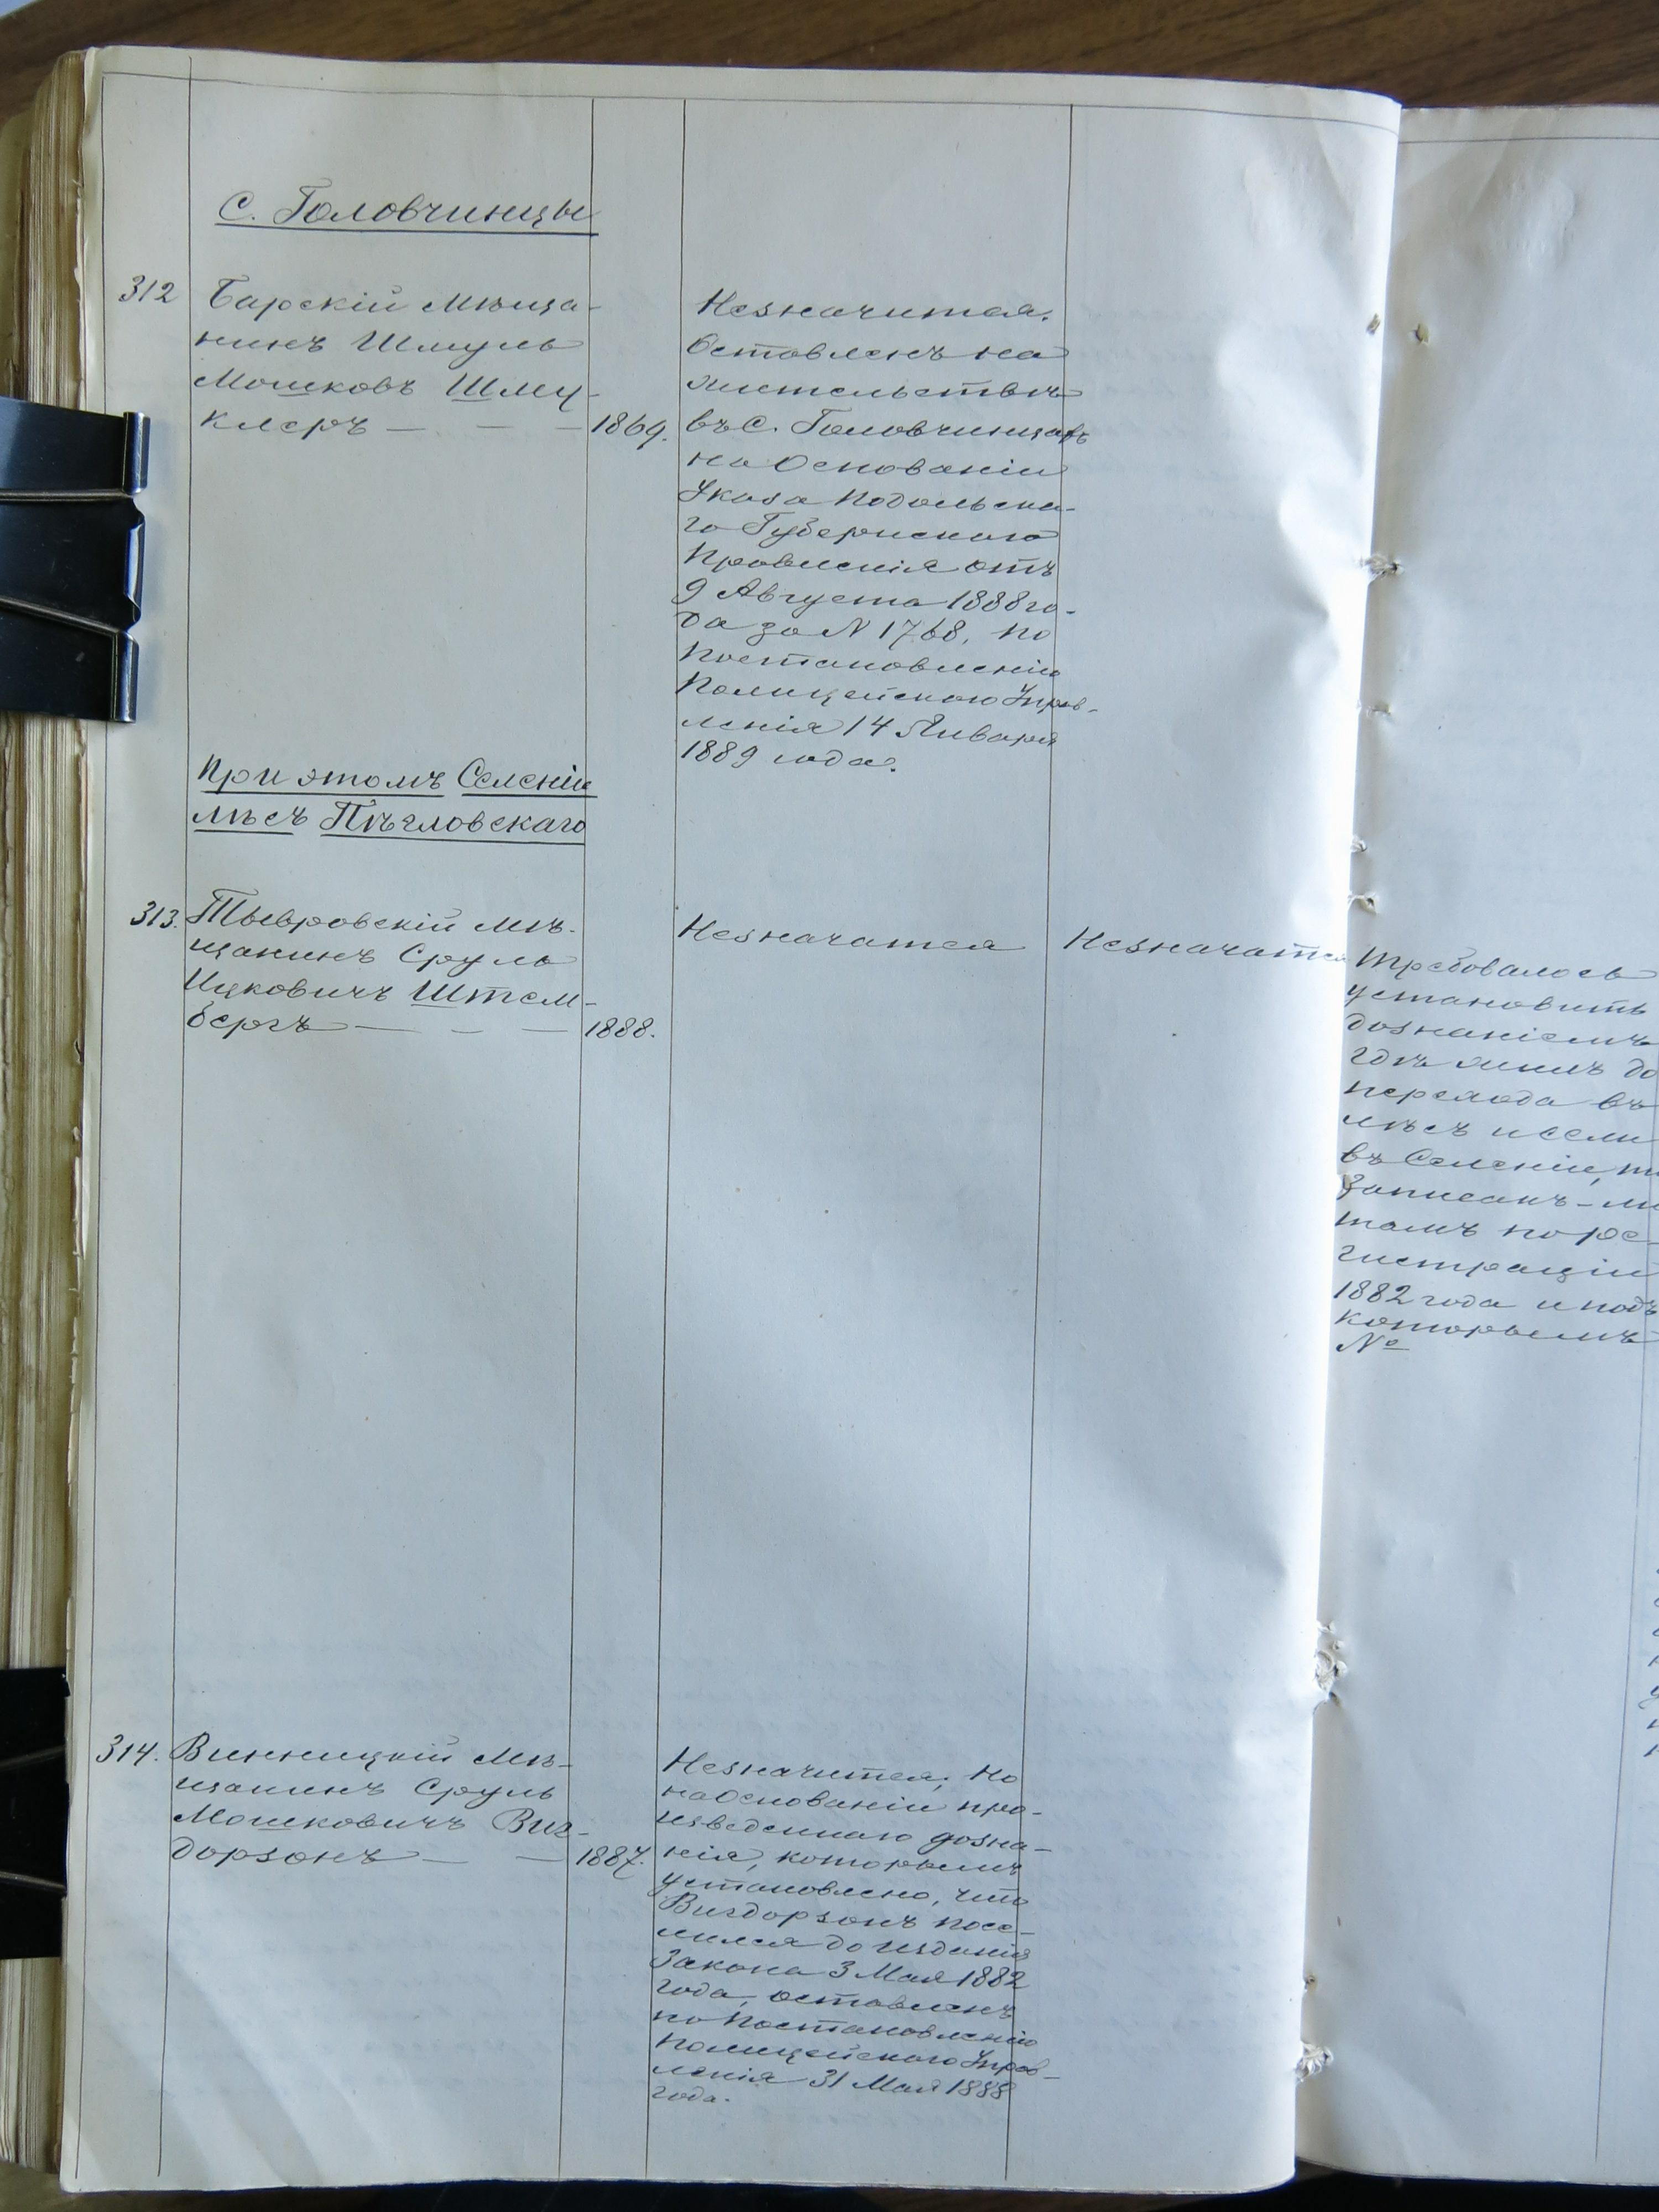 С. Головчинцы
312
Барскій мѣща-
нинъ Шмуль
Мошковъ Шму-
клеръ — — — 1869.
Незначится.
Оставленъ на
жительствѣ
въ С. Головчинцахъ
на основаніи
Указа Подольска-
го Губернскаго
Правленія отъ
9 Августа 1888 го-
да за N 1768, по
постановленію
Полицейскаго Управ-
ленія 14 Января
1889 года.
При этомъ Селеніи
лѣсъ Пѣгловскаго
313.
Тывровскій мѣ-
щанинъ Сруль
Ицковичъ Штем-
бергъ — — — 1888.
Незначатся
Незначатся
Требовалось
установить
дознаніемъ
гдѣ жилъ до
перехода въ
лѣсъ и если
въ Селеніи, то
записанъ-ли
тамъ по ре-
гистраціи
1882 года и подъ
которымъ
№
314.
Винницкій мѣ-
щанинъ Сруль
Мошковичъ Виг-
дорзонъ — — 1887.
Незначится, но
на основаніи про-
изведеннаго дозна-
нія, которымъ
установлено, что
Вигдорзонъ посе-
лился до изданія
Закона 3 Мая 1882
года, оставленъ
по постановленію
Полицейскаго Управ-
ленія 31 Мая 1888
года.